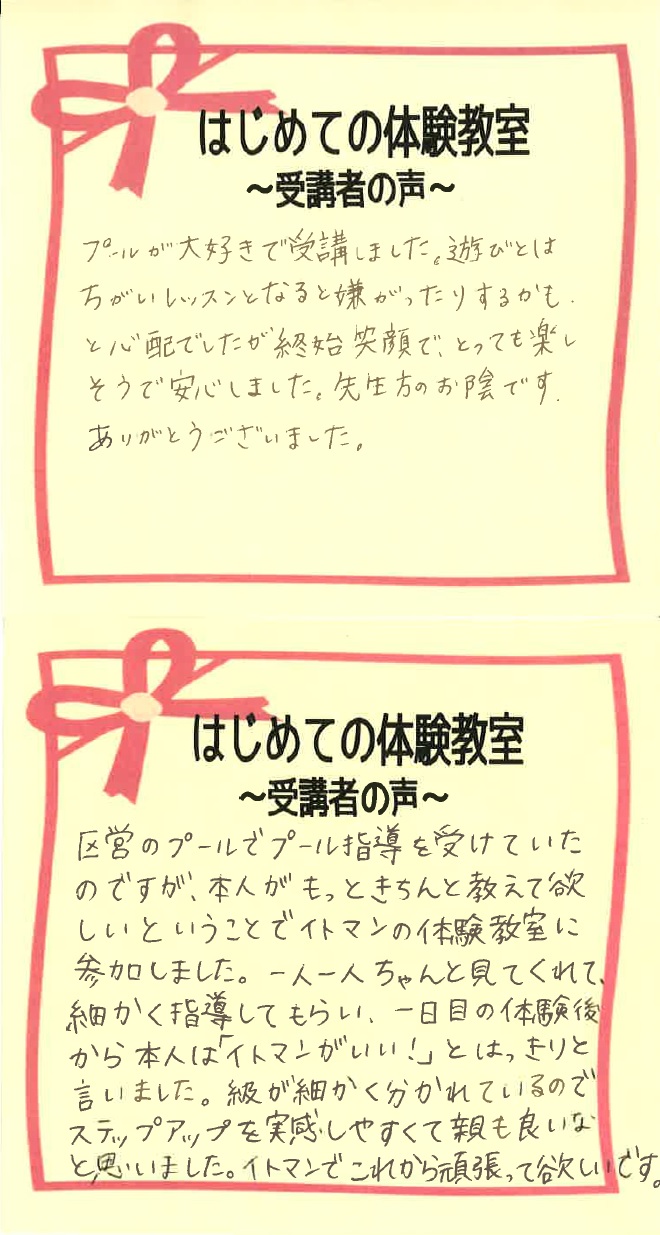 はじめての体験教室
～受講者の声～
プールが大好きで受講しました。遊びとは
ちがいレッスンとなると嫌がったりするかも、
と心配でしたが終始笑顔で、とっても楽し
そうで安心しました。先生方のお陰です。
ありがとうございました。
はじめての体験教室
～受講者の声～
区営のプールでプール指導を受けていた
のですが、本人がもっときちんと教えて欲
しいということでイトマンの体験教室に
参加しました。一人一人ちゃんと見てくれて、
細かく指導してもらい、一日目の体験後
から本人は「イトマンがいい！」とはっきりと
言いました。級が細かく分かれているので
ステップアップを実感しやすくて親も良いな
と思いました。イトマンでこれから頑張って欲しいです。